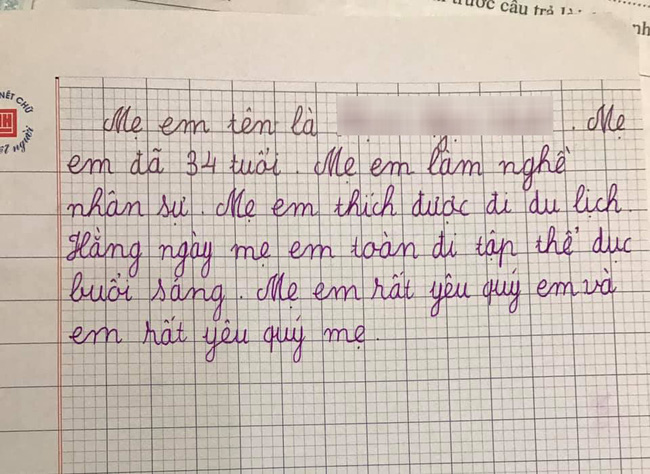 trước câu trả
NÉT CHỮ
người
Mẹ em tên là . Mẹ
em đã 34 tuổi. Mẹ em làm nghề
nhân sự. Mẹ em thích được đi du lịch.
Hằng ngày mẹ em toàn đi tập thể dục
buổi sáng. Mẹ em rất yêu quý em và
em rất yêu quý mẹ.